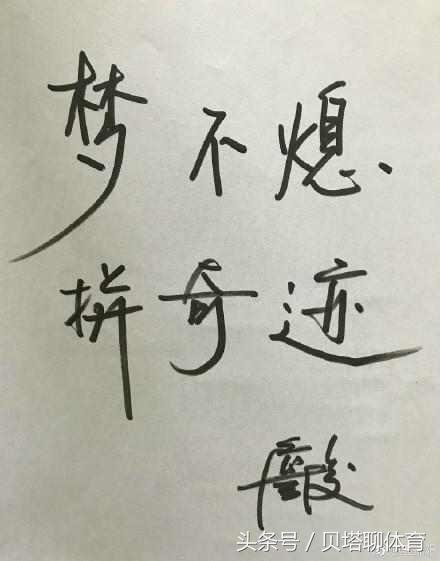 梦不熄
拼奇迹
头条号／贝塔聊体育